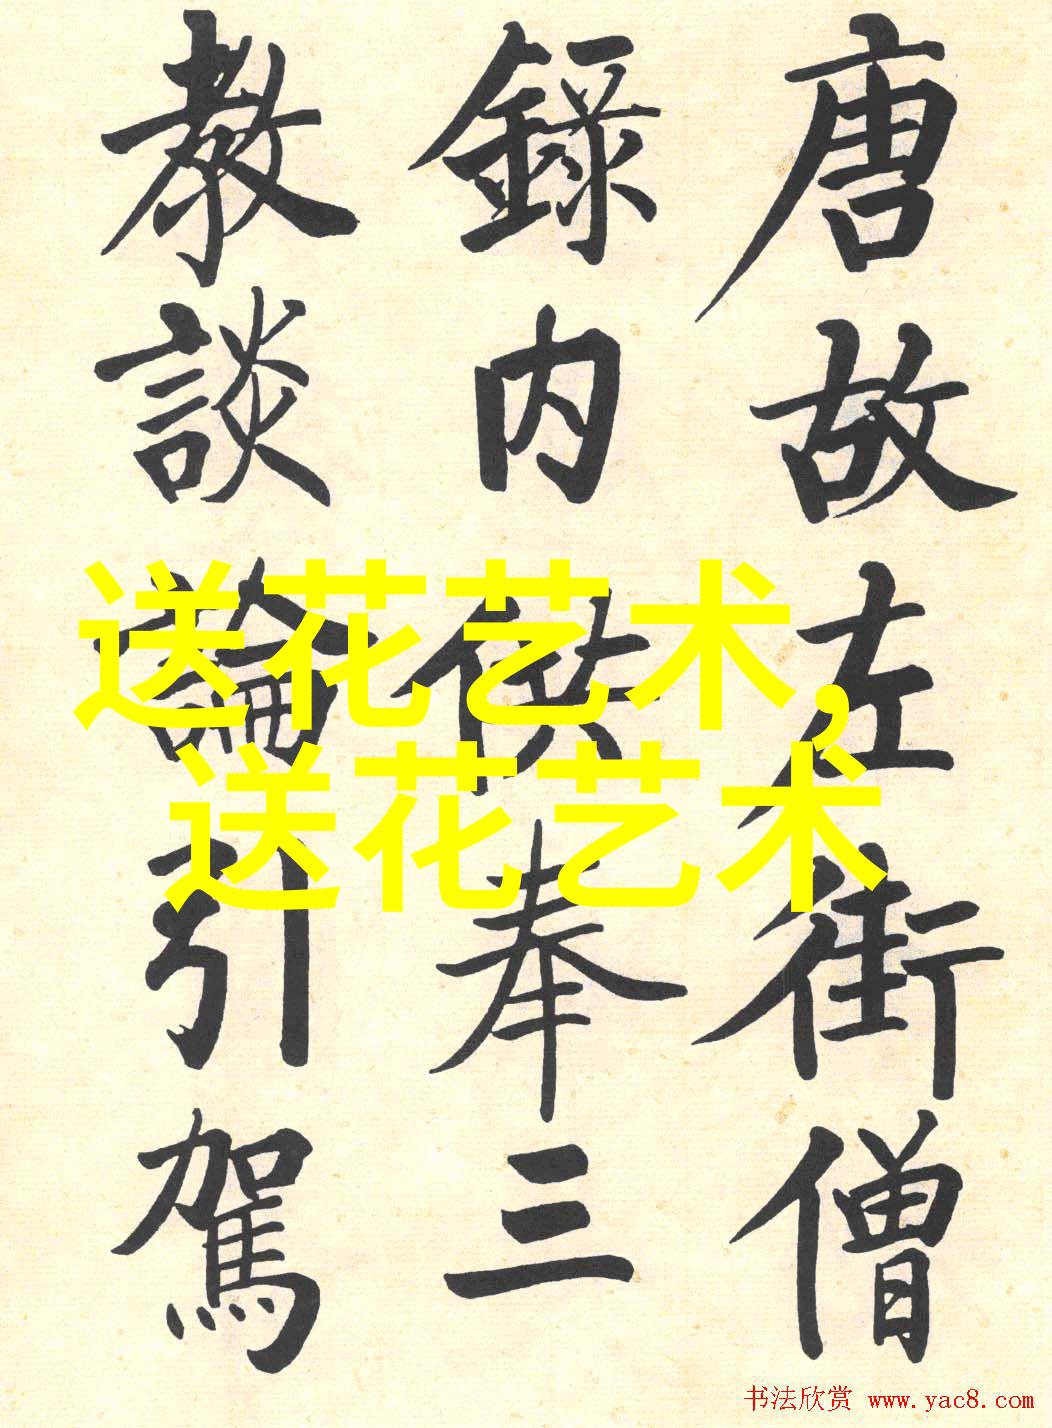 唐故左街僧
錄内供奉三
教談論引駕
送花艺术,
送花艺术
书法欣赏 www.yac8.com